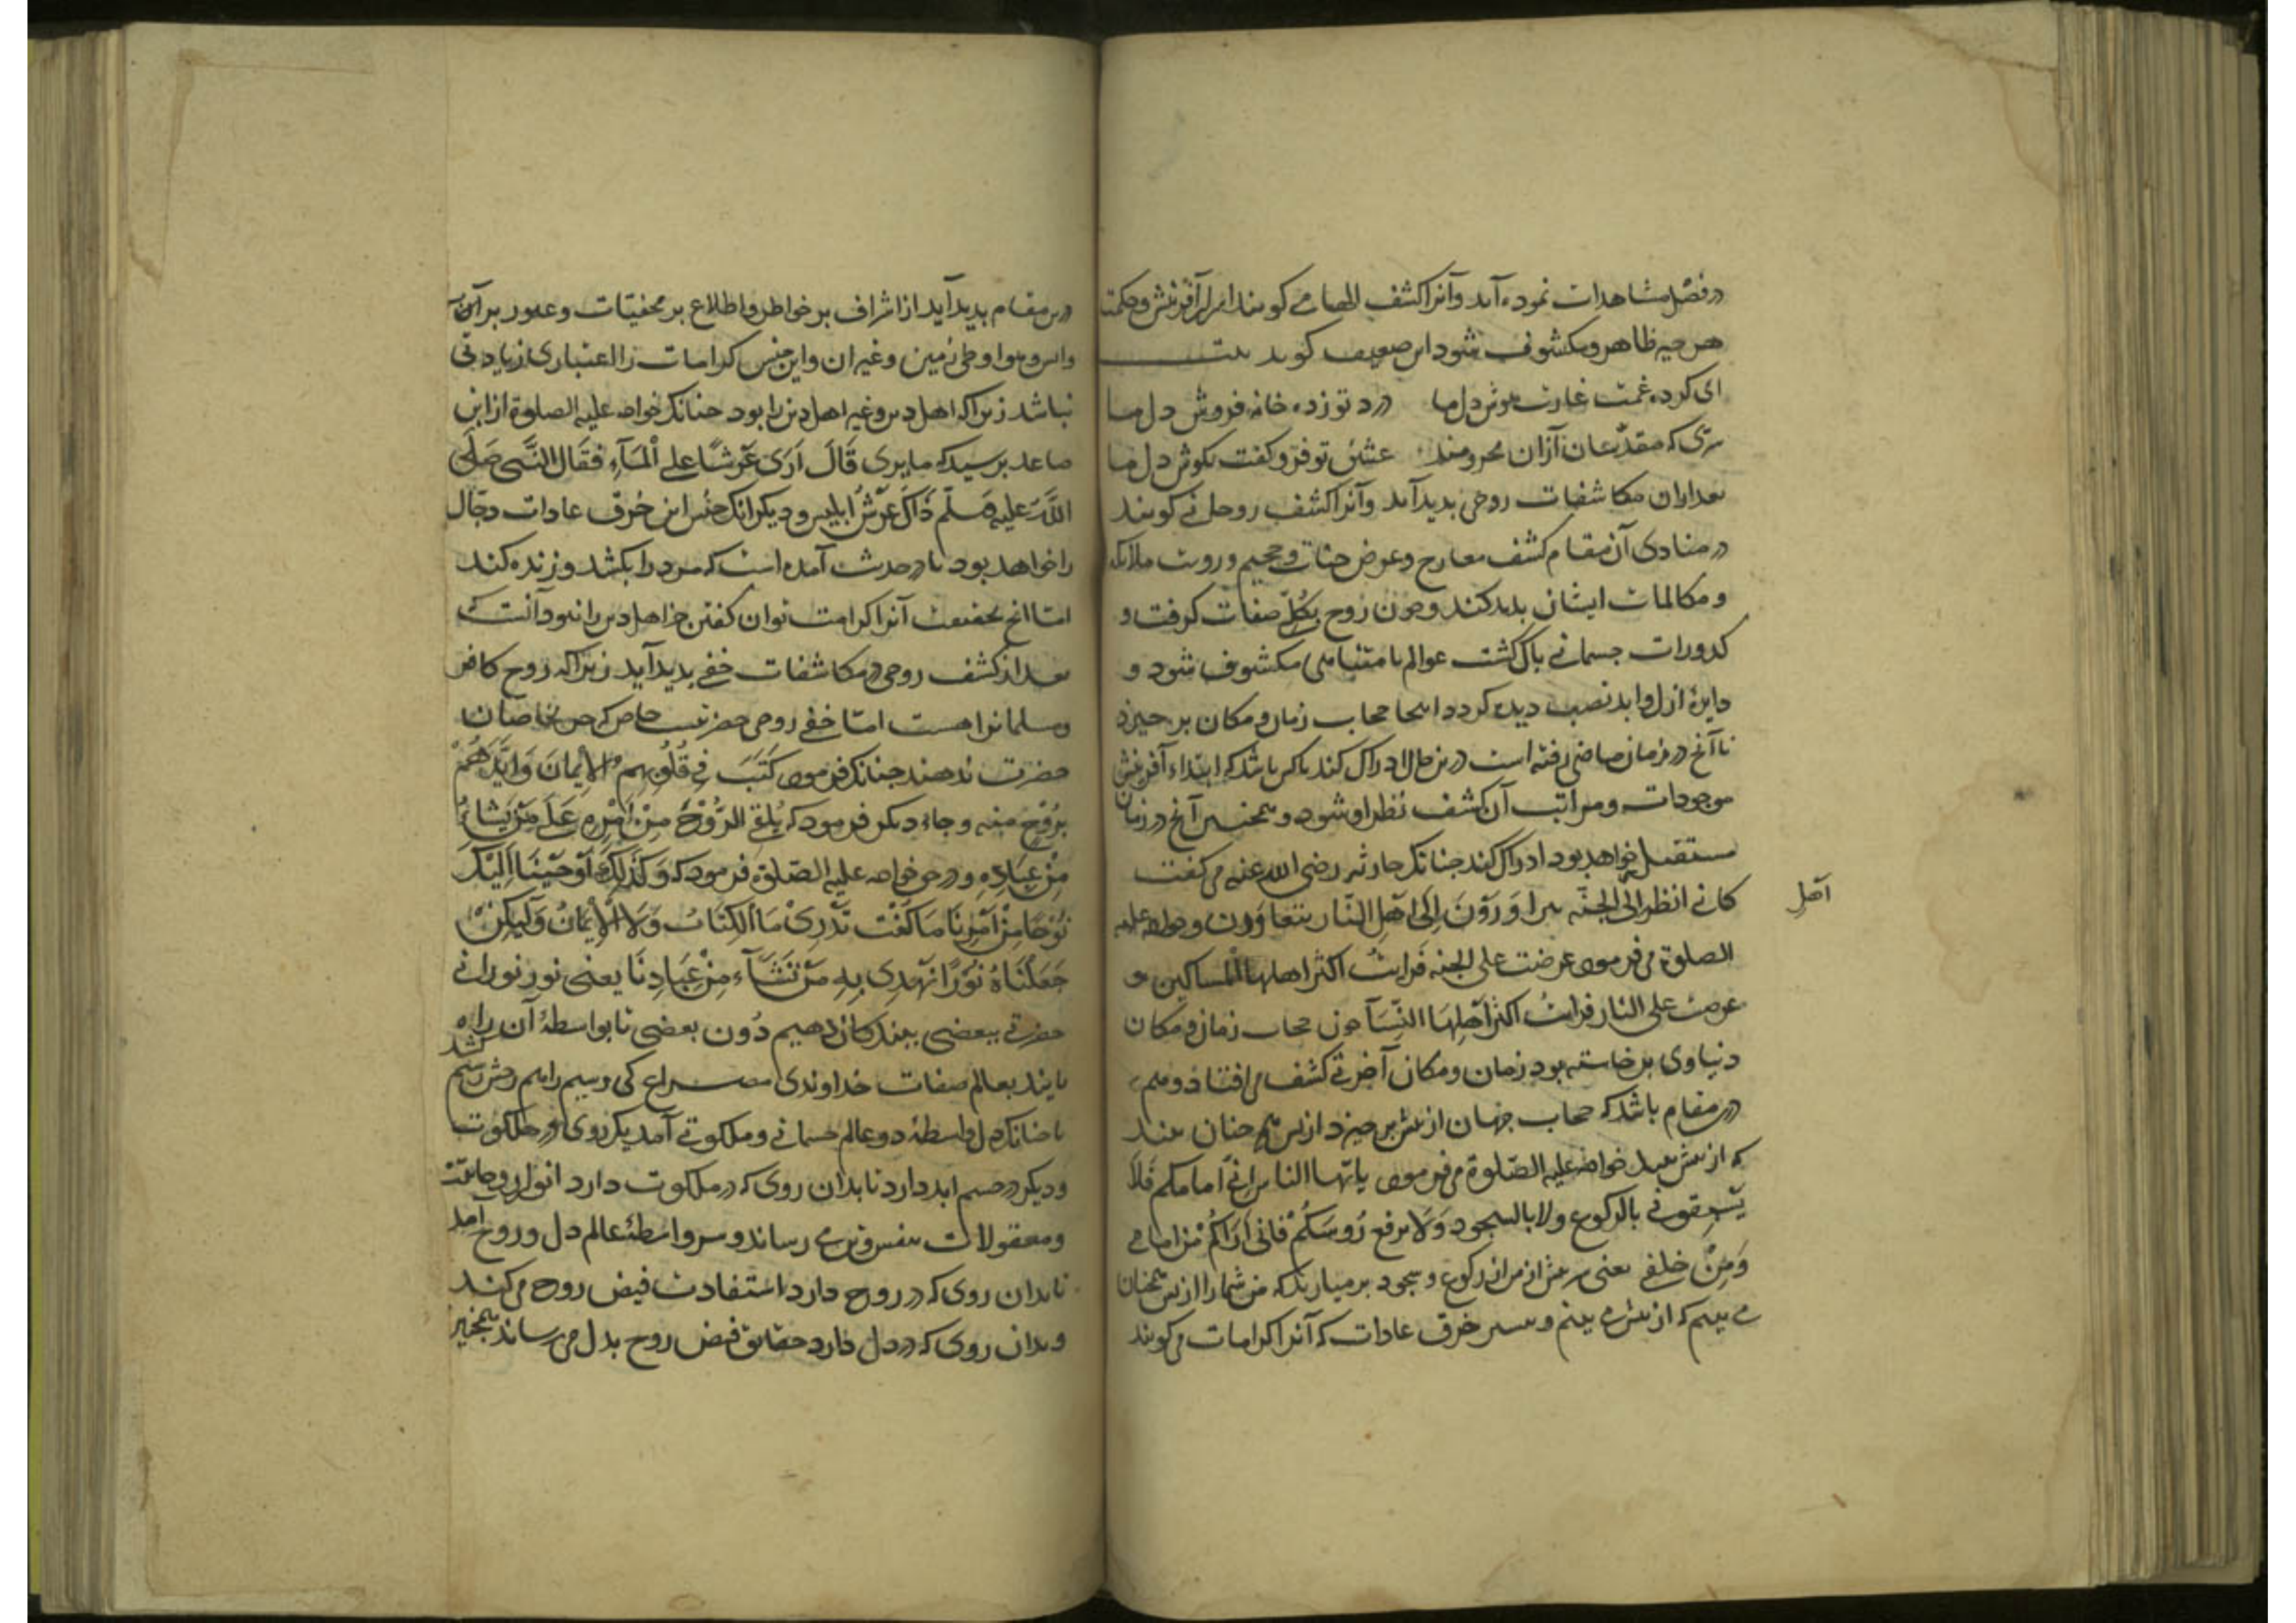 در فصل مشاهدات نموده آید وآنرا کشف الهامی کویند اسرار آفرینش وحکمت
هر چیز ظاهر ومکشوف شود این ضعیف کوید بیت
ای کرده غمت غارت هوش دل ما درد تو زده خانه فروش دل ما
سری که مقدسان ازان محرومند عشق تو فرو کفت بکوش دل ما
بعد ازان مکاشفات روحی بدید آید وآنرا کشف روحانی کویند
در مبادی آن مقام کشف معارج وعرض جنات وجحیم ورویت ملایکه
و مکالمات ایشان بدید کند وچون روح بکل صفات کرفت و
کدورات جسمانی باک کشت عوالم نامتناهی مکشوف شود و
دایرهٔ ازل وابد نصب دیده کردد اینجا حجاب زمان ومکان بر خیزد
تا آنج در زمان ماضی رفته است در ین حال ادراک کند تا کس باشد که ابتداء آفرینش
موجودات ومراتب آن کشف نظر او شود وهمچنین آنج در زمان
مستقبل خواهد بود ادراک کند جنانک حارثه رضی الله عنه می کفت
کانی انظر الی الجنة یتزاورون الی اهل النار یتعاوون وخواجه علیه
اهل
الصلوة می فرمود عرضت علی الجنه فرایت اکثر اهلها المساکین و
عرضت علی النار فرایت اکثر اهلها النسآ چون حجاب زمان ومکان
دنیاوی برخاسته بود زمان ومکان آخرتی کشف می افتاد وهم
درین مقام باشد که حجاب جهان از بیش بر خیزد از بس همچنان بیند
که از بیش بیند خواجه علیه الصلوة می فرمود یا ایها الناس انی امامکم فلا
یسبقونی بالرکوع ولا بالسجود ولا برفع رؤسکم فانی اراکم من امامی
ومن خلفی یعنی بیش از من از رکوع وسجود بر میارید که من شما را از بس همچنان
می بینم که از بیش می بینم وبیشتر خرق عادات که آنرا کرامات می کویند
درین مقام بدید آید از اشراف بر خواطر واطلاع بر مخفیات وعبور بر آب
وآتش وهوا وطی زمین وغیر ان واین جنس کرامات را اعتباری زیادتی
نباشد زیراکه اهل دین وغیر اهل دین را بود جنانک خواجه علیه الصلوة از ابن
صاعد برسید که ما یری قال اری عرشا علی المآء فقال النبی صلی
الله علیه وسلم ذاک عرش ابلیس ودیکر انک جنس این خرق عادات دجال
را خواهد بود تا در حدیث آمده است که مرد را بکشد وزنده کند
اما انچ بحقیقت آنرا کرامت توان کفتن جز اهل دین را نبود آنست که
بعد از کشف روحی در مکاشفات خفی بدید آید زیراکه روح کافر
ومسلمانرا هست اما خفی روحی حضرتیست خاص که جز بخاصان
حضرت ندهند جنانک فرمود کتب فی قلوبهم الایمان وایدهم
بروح منه وجاء دیکر فرمود که یلقی الروح من امره علی من یشاء
من عباده ودر حق خواجه علیه الصلوة فرمود که وکذلک اوحینا الیک
روحا من امرنا ما کنت تدری ما الکتاب ولا الایمان ولکن
جعلناه نورا نهدی به من نشآء من عبادنا یعنی نور نورانی
حضرتی ببعضی بندکان دهیم دون بعضی تا بواسطهٔ آن راه
یابند بعالم صفات خداوندی مصراع کی وسیم رابم رخش رستم کشد
تا جنانک دل واسطهٔ دو عالم جسمانی وملکوتی آمد یک روی در ملکوت
ودیکر در جسم ابد دارد تا بدان روی که در ملکوت دارد انوار روحانیت
ومعقولات بنفس وتن می رساند وسر واسطهٔ عالم دل وروح آمد
تا بدان روی که در روح دارد استفادت فیض روح می کند
وبدان روی که در دل دارد حقایق فیض روح بدل می رساند همچنین